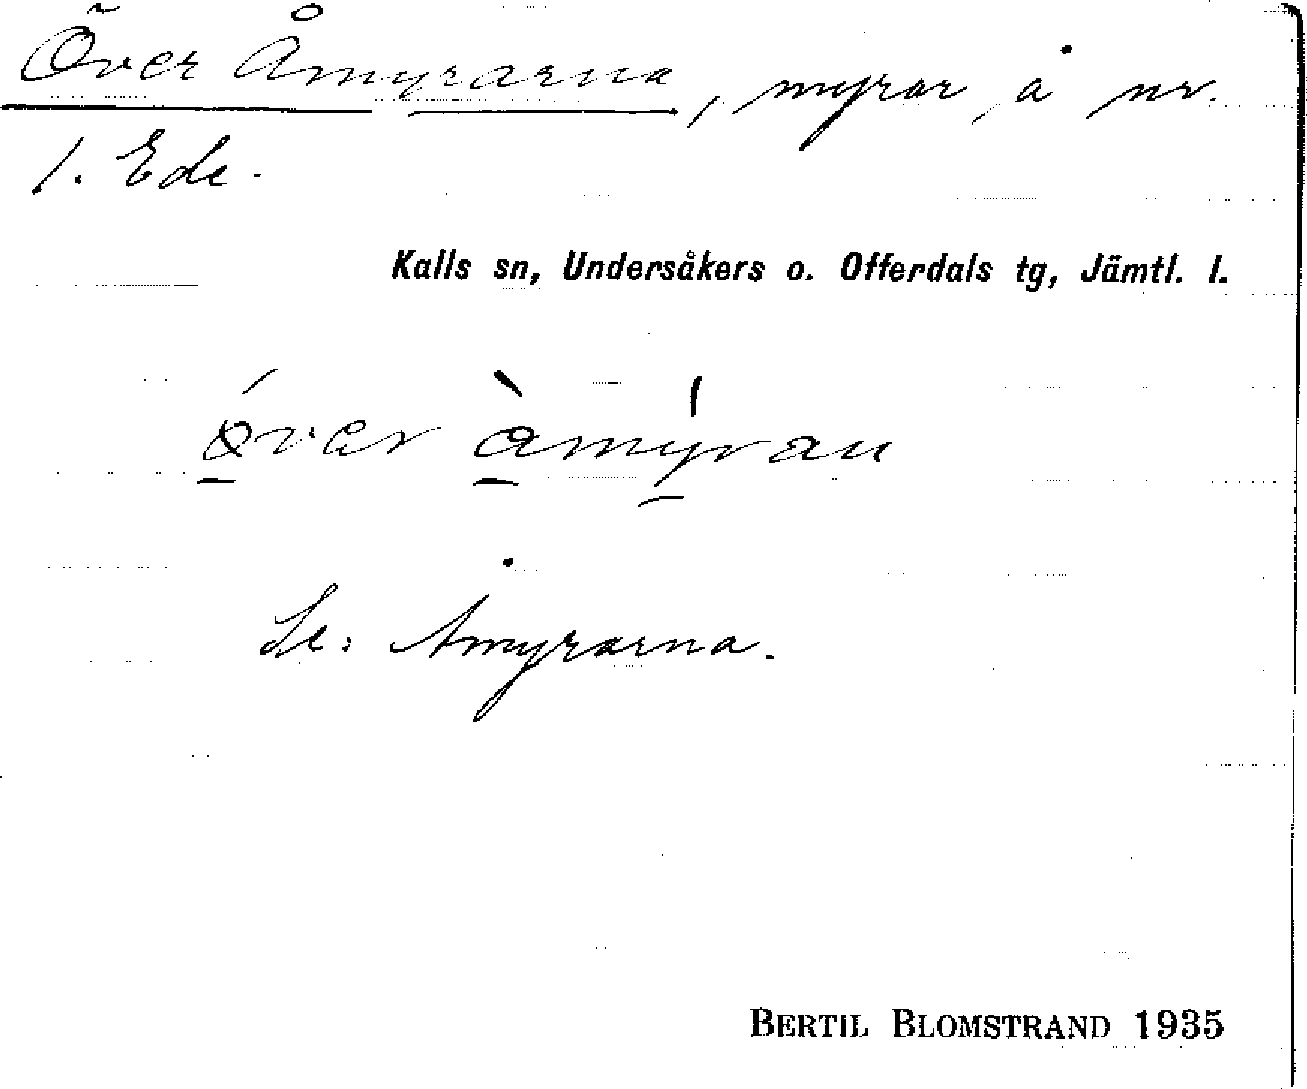 Över Åmyrarna, myrar, å nr.
1. Ede.
Kalls sn, Undersåkers o. Offerdals tg, Jämtl. l.
øver åmyran
Se: Åmyrarna.
BERTIL BLOMSTRAND 1935